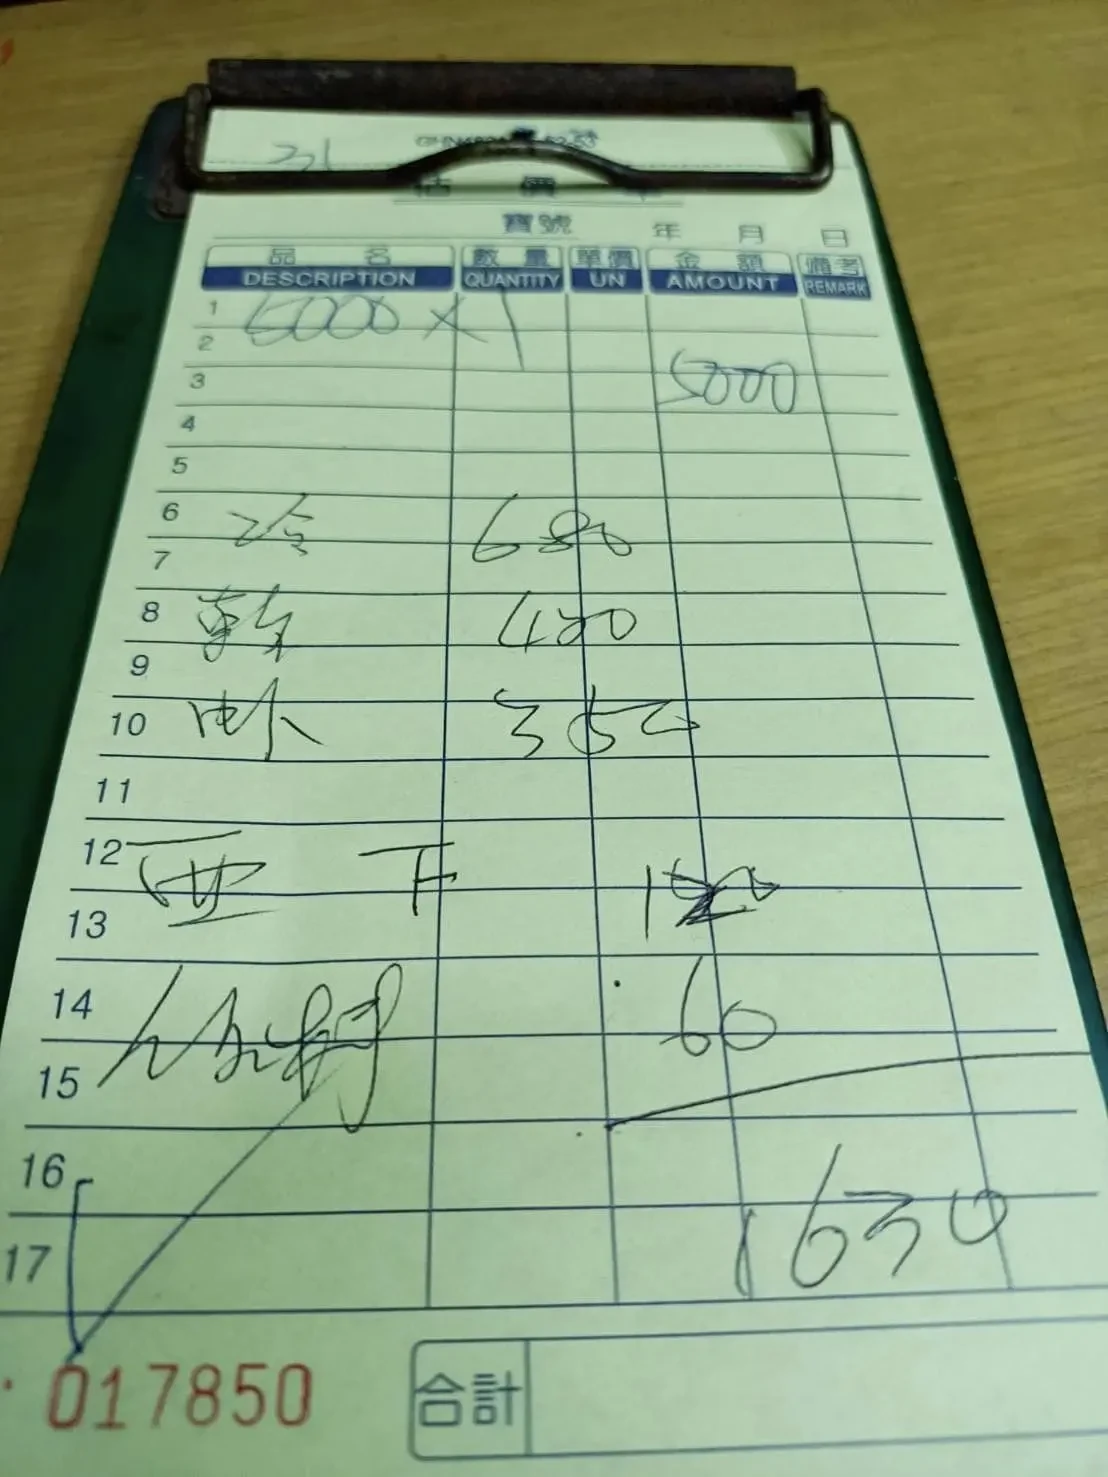 31
估 價 單
寶號 年 月 日
品 名 數 量 單價 金 額 備考
DESCRIPTION QUANTITY UN AMOUNT REMARK
1 5000 × 1
2
3 5000
4
5
6 冷 680
7
8 420
9
10 350
11
12 西 下
13
14 60
15
16
17 1630
017850 合計